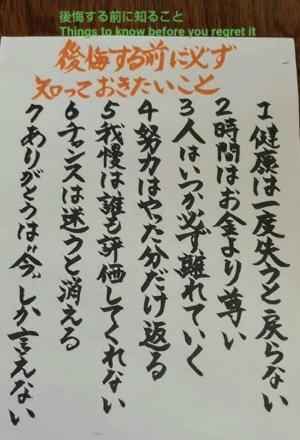 後悔する前に知ること
Things to know before you regret it
後悔する前に必ず
知っておきたいこと
1健康は一度失うと戻らない
2時間はお金より尊い
3人はいつか必ず離れていく
4努力はやった分だけ返る
5我慢は誰も評価してくれない
6チャンスは迷うと消える
7ありがとうは“今”しか言えない